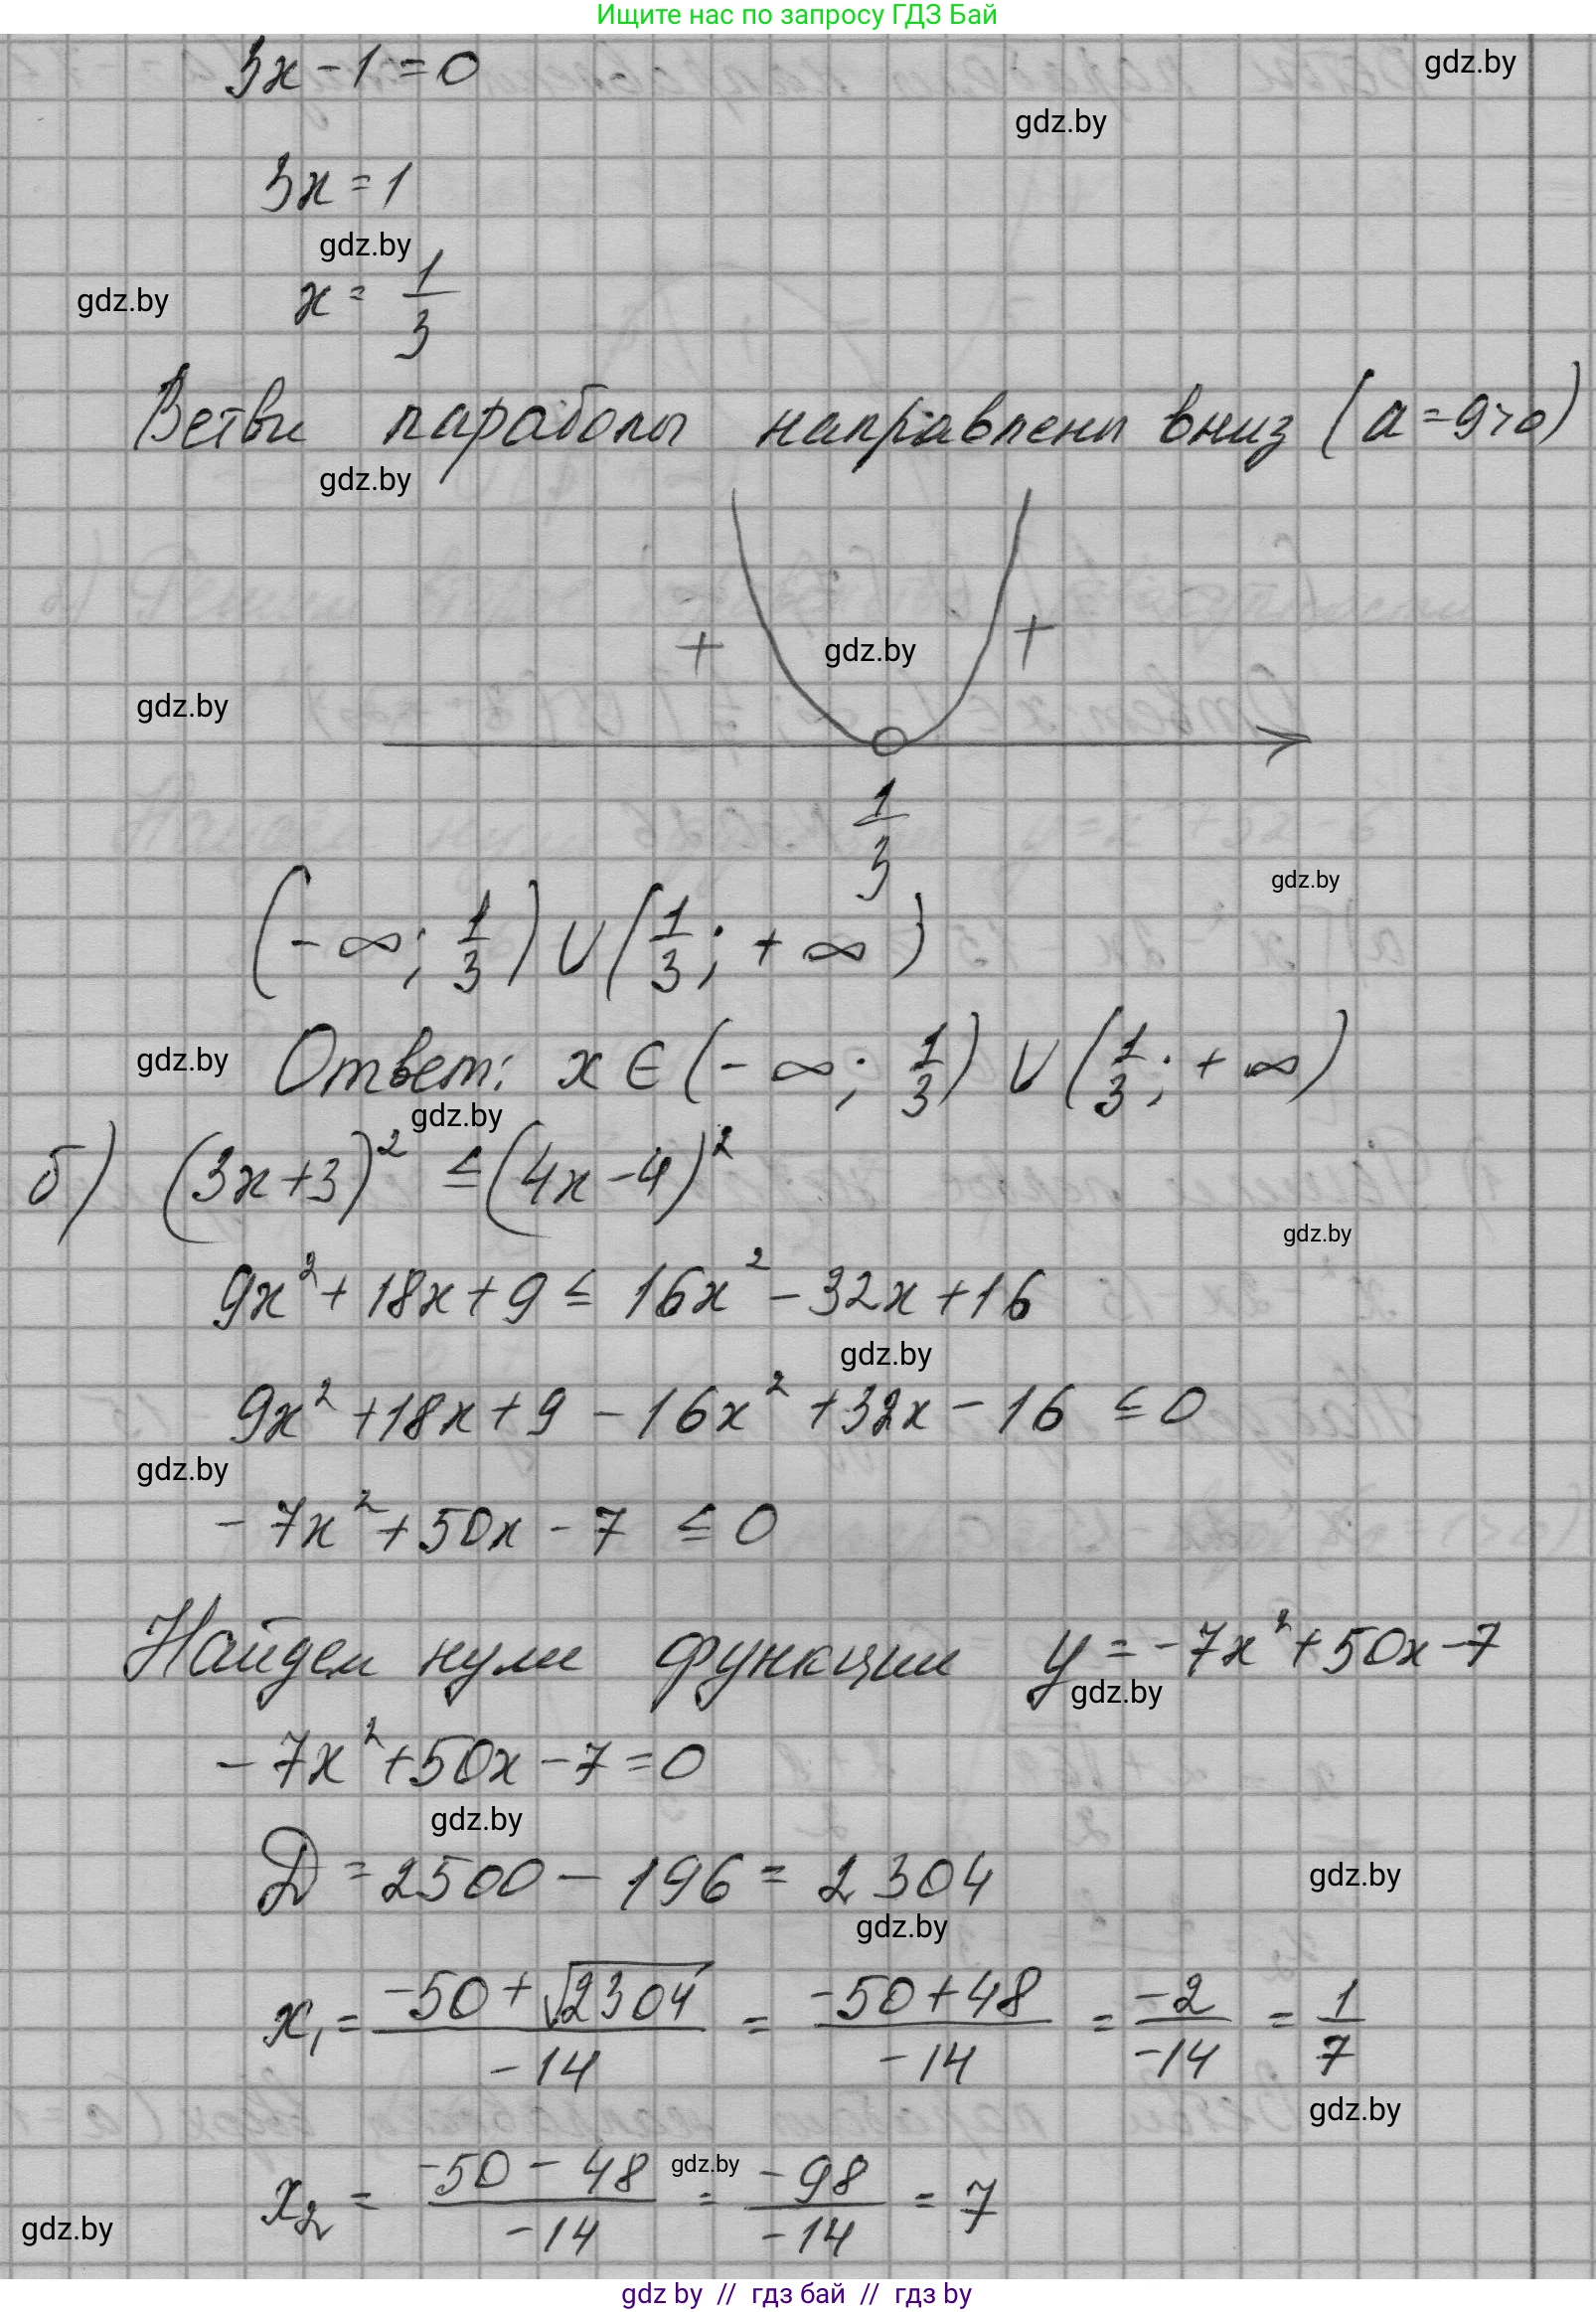 Ищите нас по запросу ГДЗ Бай
3x - 1 = 0
gdz.by
gdz.by
3x = 1
gdz.by
gdz.by
x = 1/3
Ветви параболы направлены вниз (a = 9 > 0)
gdz.by
+ gdz.by +
gdz.by
1/3
gdz.by
(-∞; 1/3) ∪ (1/3; +∞)
gdz.by
Ответ: x ∈ (-∞; 1/3) ∪ (1/3; +∞)
gdz.by
б) (3x+3)² ≤ (4x-4)²
gdz.by
9x² + 18x + 9 ≤ 16x² - 32x + 16
gdz.by
9x² + 18x + 9 - 16x² + 32x - 16 ≤ 0
gdz.by
-7x² + 50x - 7 ≤ 0
Найдем нули функции y = -7x² + 50x - 7
gdz.by
-7x² + 50x - 7 = 0
gdz.by
D = 2500 - 196 = 2304
gdz.by
gdz.by
x₁ = (-50 + √2304)/(-14) = (-50 + 48)/(-14) = (-2)/(-14) = 1/7
gdz.by
x₂ = (-50 - 48)/(-14) = (-98)/(-14) = 7
gdz.by
gdz.by
gdz by // гдз бай // гдз by